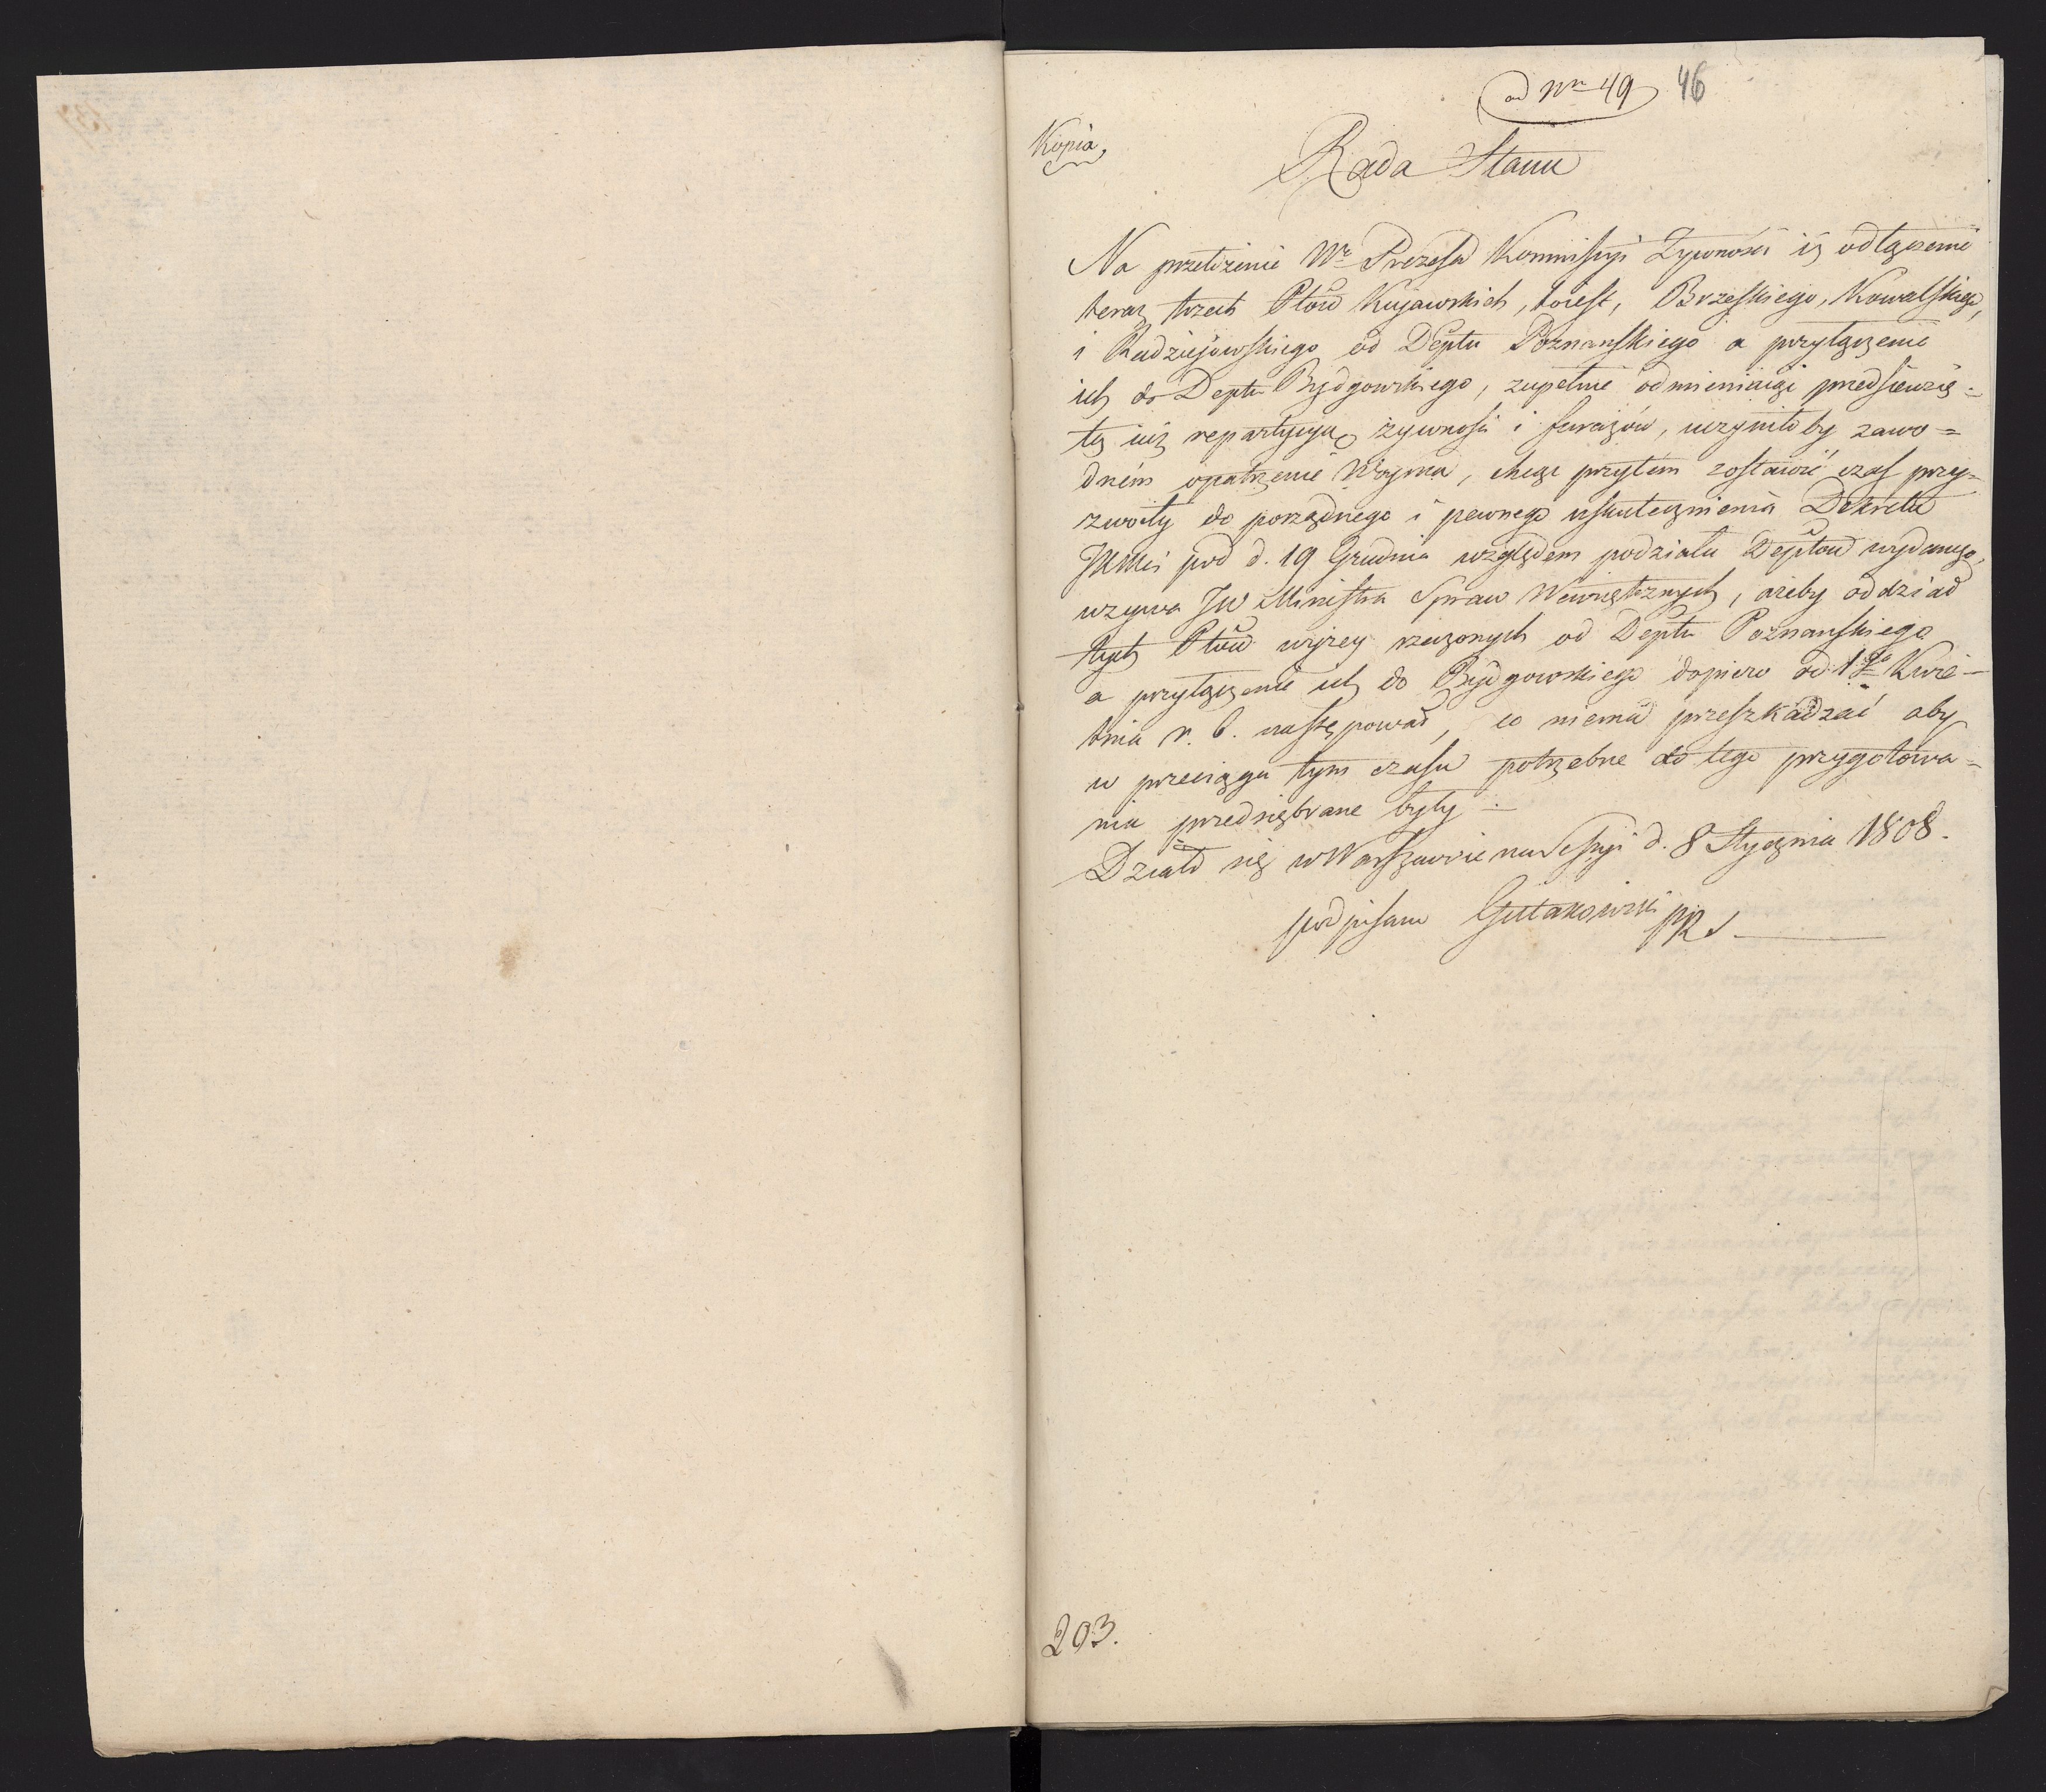 ad Nrn 49 46
Kopia,
Rada Stanu
Na przełożenie Wo Prezesa Kommissyi Zywnosci iż odłączenie
teraz trzech Ptów Kujawskich, toiest, Brzeskiego, Kowalskiego,
i Radziejowskiego od Deptu Poznanskiego a przyłączenie
ich do Deptu Bydgowskiego, zupełnie odmieniaiąc przedsiewzię=
tą iuż repartycyą żywnosci i furażów, uczyniłoby zawo=
dném opatrzenie Woyska, chcąc przytem zostawić czas przy=
zwoity do porządnego i pewnego uskutecznienia Dekretu
JKMci pod d. 19 Grudnia względem podziału Deptów wydanego,
wzywa JW Ministra Spraw Wewnętrznych, ażeby oddział
tych Ptów wyżey rzeczonych od Deptu Poznanskiego
a przyłączenie ich do Bydgowskiego dopiero od 1go Kwie-
tnia r. b. nastepował, co niema przeszkadzać aby
w przeciągu tym czasu potrzebne do tego przygotowa=
nia przedsiębrane były.
Działo się w Warszawie na Sessyi d. 8 Stycznia 1808.
podpisano Gutakowski PRS
203.